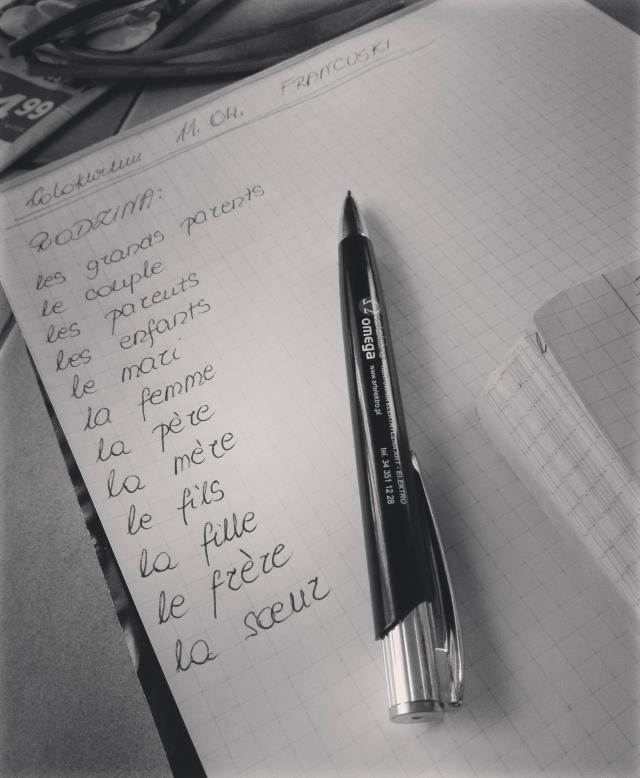 4,99
Kolokwium 11.04. FRANCUSKI
RODZINA:
les grands parents
le couple
les parents
les enfants
le mari
la femme
la père
la mère
le fils
la fille
le frère
la sœur
omega
www.artelektro.pl
ELEKTRO
tel. 34 351 12 28